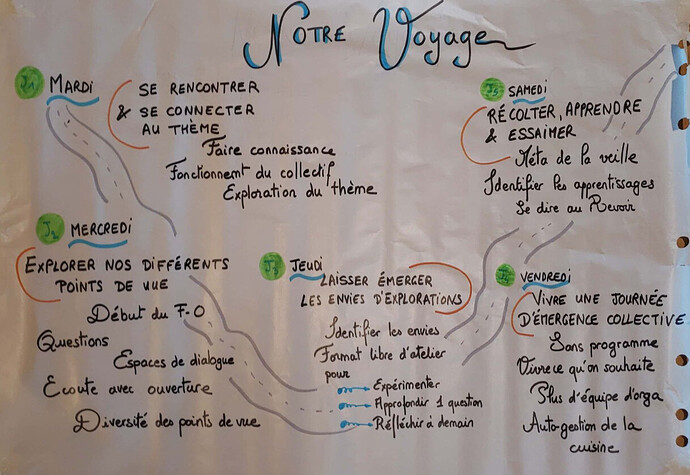 Notre Voyage
J1 MARDI
SE RENCONTRER
& SE CONNECTER
AU THÈME
Faire connaissance
Fonctionnement du collectif
Exploration du thème
J2 MERCREDI
EXPLORER NOS DIFFÉRENTS
POINTS DE VUE
Début du F-O
Questions
Espaces de dialogue
Ecoute avec ouverture
Diversité des points de vue
J3 JEUDI
LAISSER ÉMERGER
LES ENVIES D'EXPLORATIONS
Identifier les envies
Format libre d'atelier
pour
Expérimenter
Approfondir 1 question
Réfléchir à demain
J4 VENDREDI
VIVRE UNE JOURNÉE
D'ÉMERGENCE COLLECTIVE
Sans programme
Vivre ce qu'on souhaite
Plus d'équipe d'orga
Auto-gestion de la
cuisine
J5 SAMEDI
RÉCOLTER, APPRENDRE
& ESSAIMER
Méta de la veille
Identifier les apprentissages
Se dire au Revoir